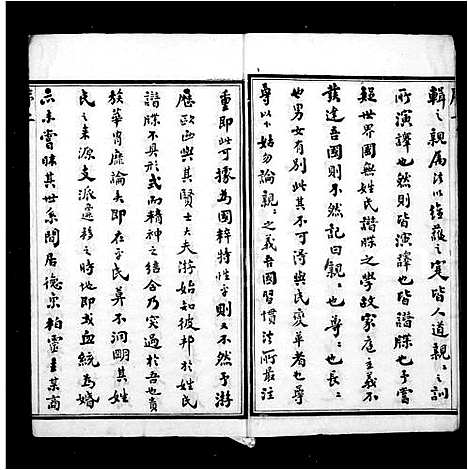 輯之親屬法以續蘊之寔皆人道親親之訓
所演譯也然則皆演譯也皆譜牒也予嘗
疑世界國無姓氏譜牒之學故家庭主義不
發達吾國則不然記曰親親也尊尊也長長
也男女有別此其不與民變革者也尊
尊以下姑勿論親親之義吾國習慣法所最注
重即此可據為國粹特性予則又不然予游
歷歐西與其賢士大夫游始知彼邦於姓氏
譜牒不具形式而精神之結合乃突過於吾也貴
族華胄靡論夫即在子民莽不洞明其姓
民之來源支派遷移之時地即或血統為婚
亦未嘗昧其世系間居德京柏靈主某商